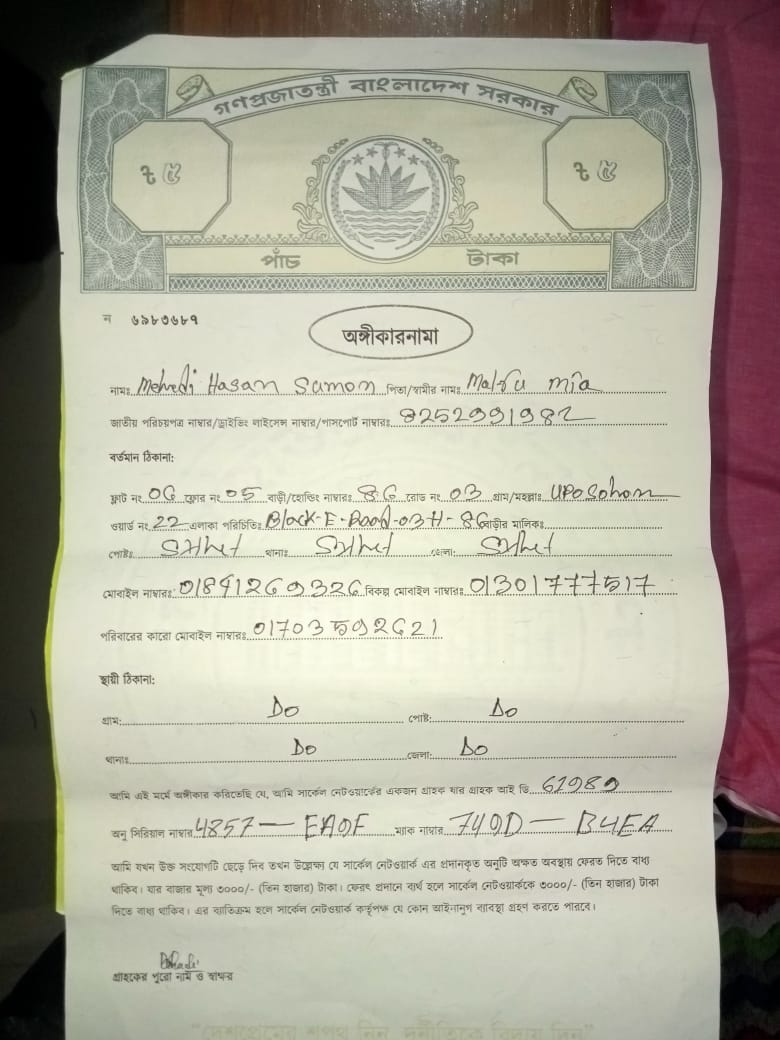 গণপ্রজাতন্ত্রী বাংলাদেশ সরকার
৳ ৫ ৳ ৫
পাঁচ টাকা
ন ৬৯৮৩৬৮৭
অঙ্গীকারনামা
নামঃ Mehedi Hasan Sumon পিতা/স্বামীর নামঃ Malfu mia
জাতীয় পরিচয়পত্র নাম্বার/ড্রাইভিং লাইসেন্স নাম্বার/পাসপোর্ট নাম্বারঃ 8252991982
বর্তমান ঠিকানা:
ফ্লাট নং 06 ফ্লোর নং 05 বাড়ী/হোল্ডিং নাম্বারঃ 86 রোড নং 03 গ্রাম/মহল্লাঃ UPOSohom
ওয়ার্ড নং 22 এলাকা পরিচিতিঃ Block-E-Road-03 H-86 বাড়ীর মালিকঃ
পোষ্টঃ Sylhet থানাঃ Sylhet জেলা: Sylhet
মোবাইল নাম্বারঃ 01841269326 বিকল্প মোবাইল নাম্বারঃ 01301777517
পরিবারের কারো মোবাইল নাম্বারঃ 01703592621
স্থায়ী ঠিকানা:
গ্রাম: Do পোষ্ট: Do
থানাঃ Do জেলা: Do
আমি এই মর্মে অঙ্গীকার করিতেছি যে, আমি সার্কেল নেটওয়ার্কের একজন গ্রাহক যার গ্রাহক আই ডি 61989
অনু সিরিয়াল নাম্বার 4857 - EA9F ম্যাক নাম্বার 749D - B4EA
আমি যখন উক্ত সংযোগটি ছেড়ে দিব তখন উল্লেক্ষ্য যে সার্কেল নেটওয়ার্ক এর প্রদানকৃত অনুটি অক্ষত অবস্থায় ফেরত দিতে বাধ্য
থাকিব। যার বাজার মূল্য ৩০০০/- (তিন হাজার) টাকা। ফেরৎ প্রদানে ব্যর্থ হলে সার্কেল নেটওয়ার্ককে ৩০০০/- (তিন হাজার) টাকা
দিতে বাধ্য থাকিব। এর ব্যতিক্রম হলে সার্কেল নেটওয়ার্ক কর্তৃপক্ষ যে কোন আইনানুগ ব্যবস্থা গ্রহণ করতে পারবে।
গ্রাহকের পুরো নাম ও স্বাক্ষর
"দেশপ্রেমের শপথ নিন, দুর্নীতিকে বিদায় দিন"